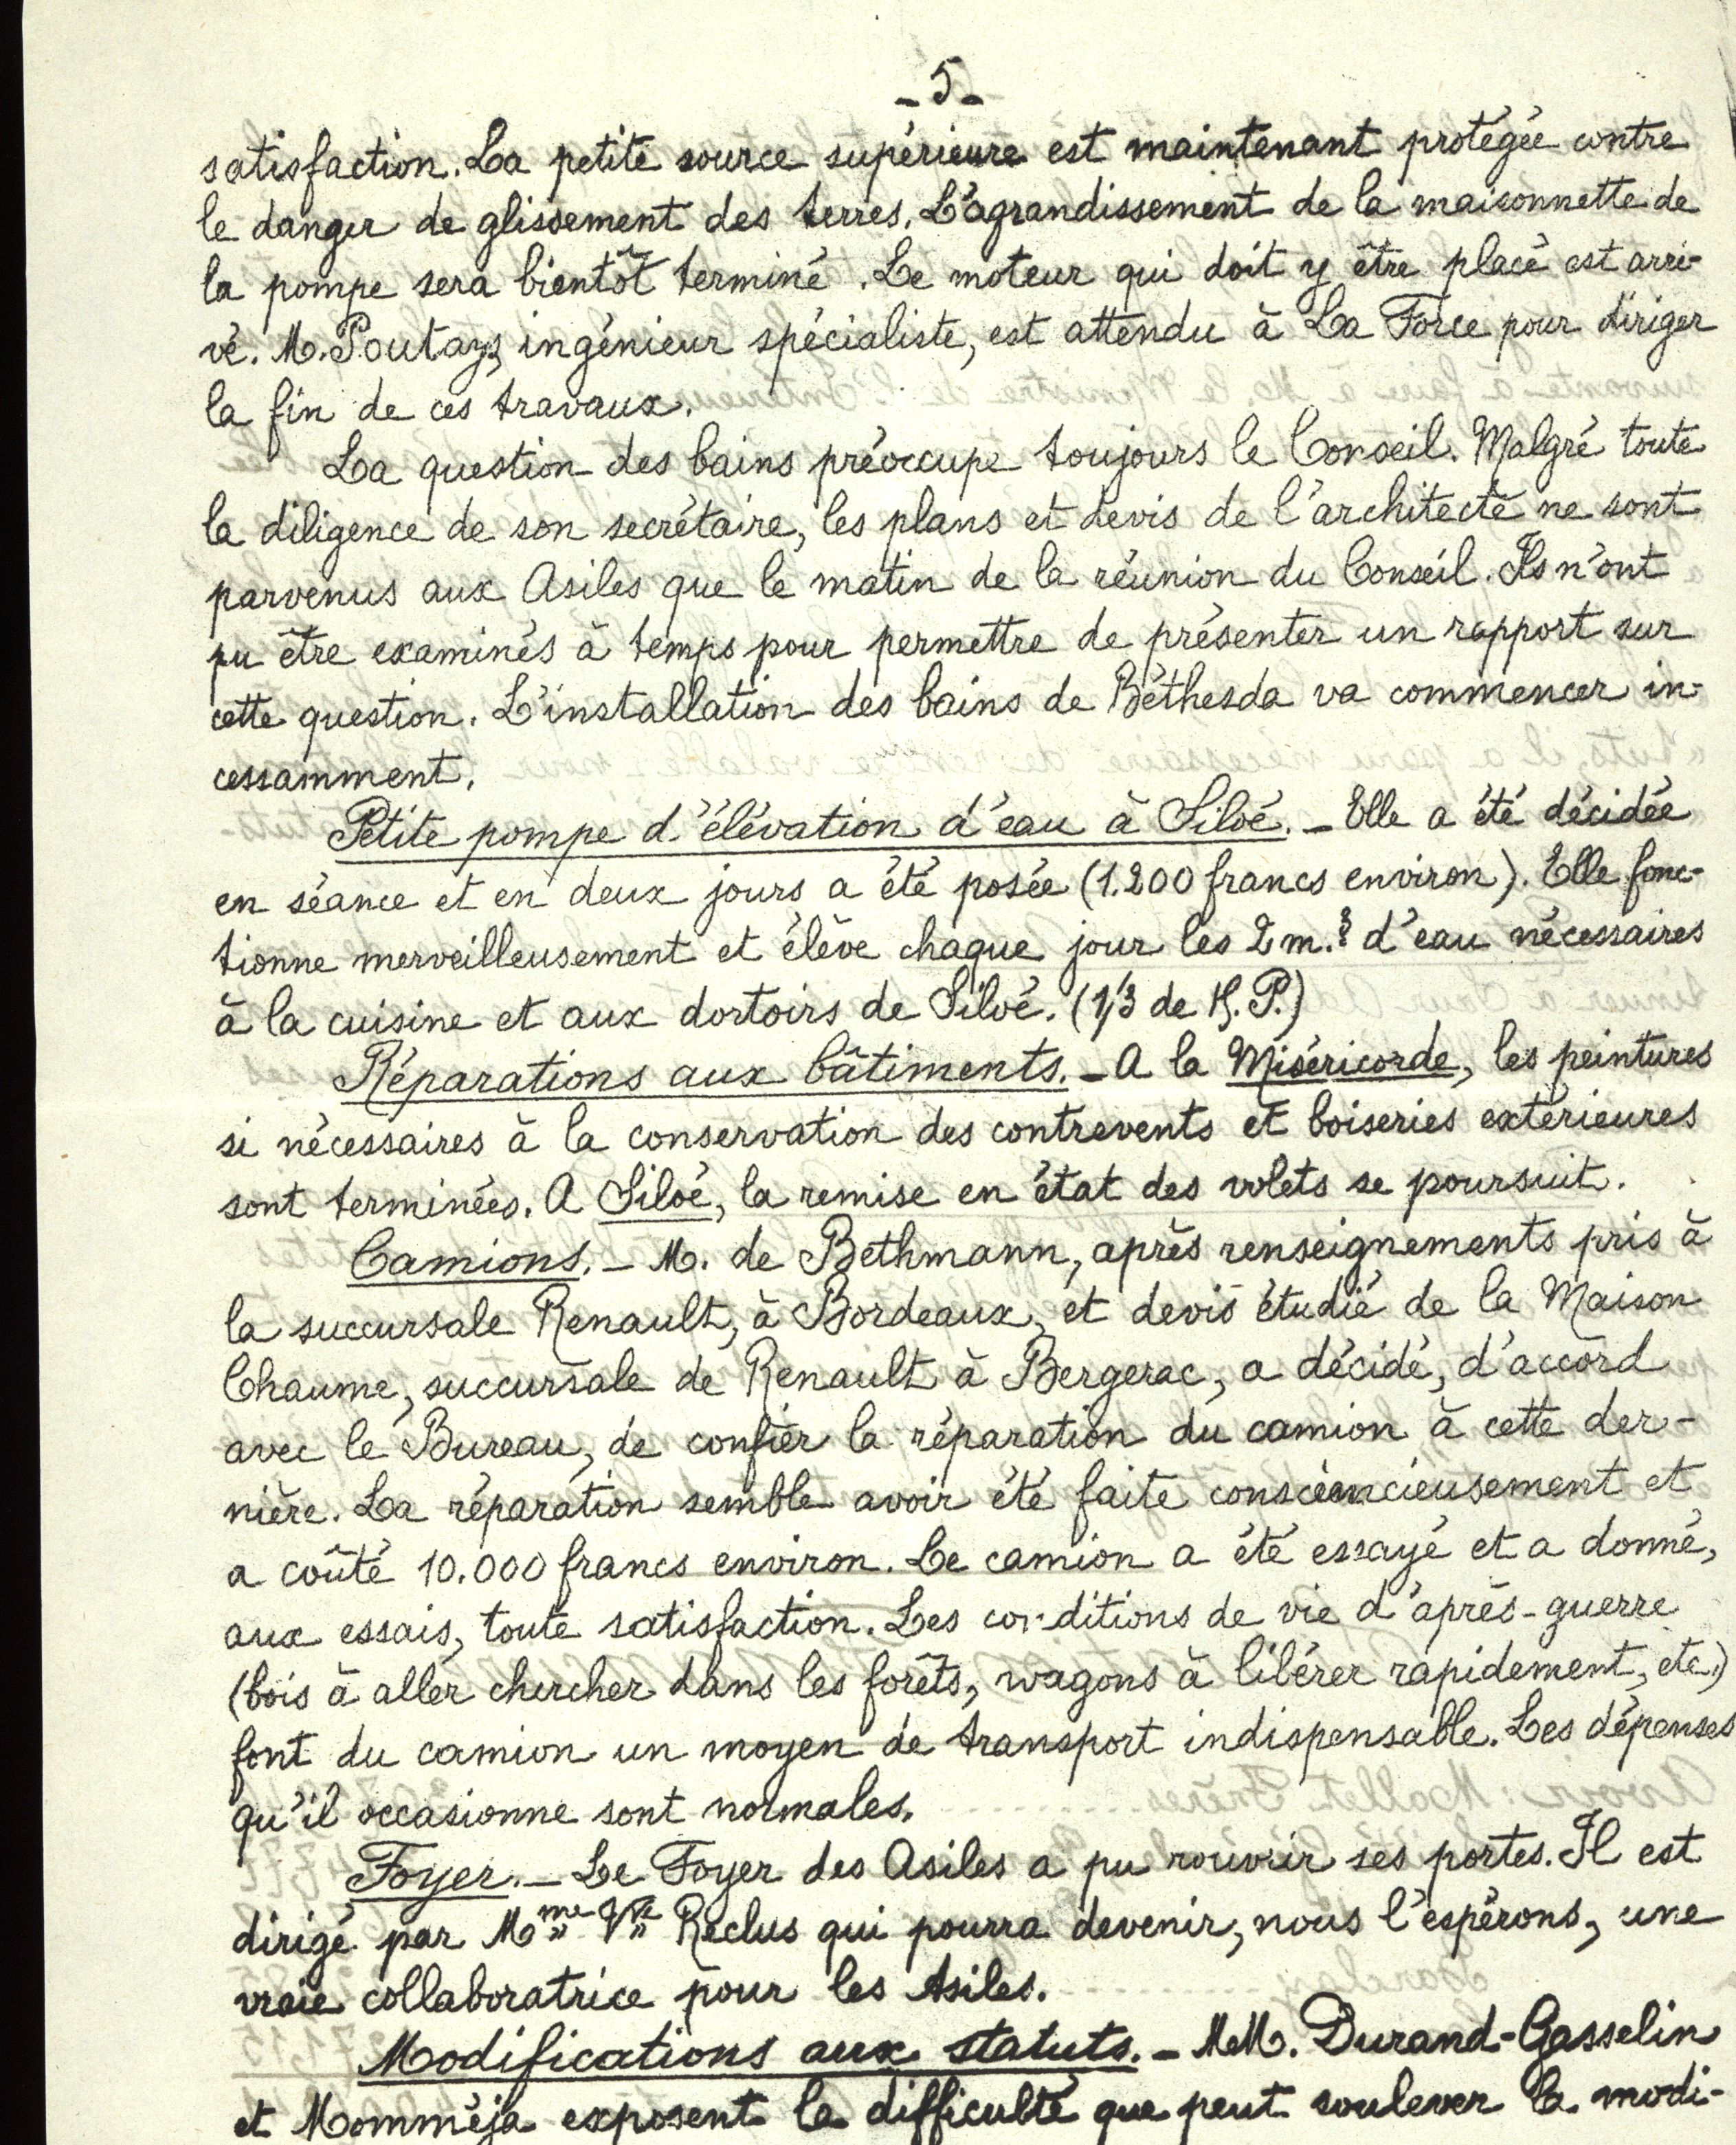 - 5 -
satisfaction. La petite source supérieure est maintenant protégée contre
le danger de glissement des terres. L'agrandissement de la maisonnette de
la pompe sera bientôt terminé. Le moteur qui doit y être placé est arri-
vé. M. Poutays, ingénieur spécialiste, est attendu à La Force pour diriger
la fin de ces travaux.
La question des bains préoccupe toujours le Conseil. Malgré toute
la diligence de son secrétaire, les plans et devis de l'architecte ne sont
parvenus aux Asiles que le matin de la réunion du Conseil. Ils n'ont
pu être examinés à temps pour permettre de présenter un rapport sur
cette question. L'installation des bains de Béthesda va commencer in-
cessamment.
Petite pompe d'élévation d'eau à Siloé. - Elle a été décidée
en séance et en deux jours a été posée (1.200 francs environ). Elle fonc-
tionne merveilleusement et élève chaque jour les 2 m.³ d'eau nécessaires
à la cuisine et aux dortoirs de Siloé. (1/3 de H.P.)
Réparations aux bâtiments. - A la Miséricorde, les peintures
si nécessaires à la conservation des contrevents et boiseries extérieures
sont terminées. A Siloé, la remise en état des volets se poursuit.
Camions. - M. de Bethmann, après renseignements pris à
la succursale Renault, à Bordeaux, et devis étudié de la Maison
Chaume, succursale de Renault à Bergerac, a décidé, d'accord
avec le Bureau, de confier la réparation du camion à cette der-
nière. La réparation semble avoir été faite consciencieusement et
a coûté 10.000 francs environ. Le camion a été essayé et a donné,
aux essais, toute satisfaction. Les conditions de vie d'après-guerre
(bois à aller chercher dans les forêts, wagons à libérer rapidement, etc.)
font du camion un moyen de transport indispensable. Les dépenses
qu'il occasionne sont normales.
Foyer. - Le Foyer des Asiles a pu rouvrir ses portes. Il est
dirigé par Mme Vve Reclus qui pourra devenir, nous l'espérons, une
vraie collaboratrice pour les Asiles.
Modifications aux statuts. - MM. Durand-Gasselin
et Momméja exposent la difficulté que peut soulever la modi-